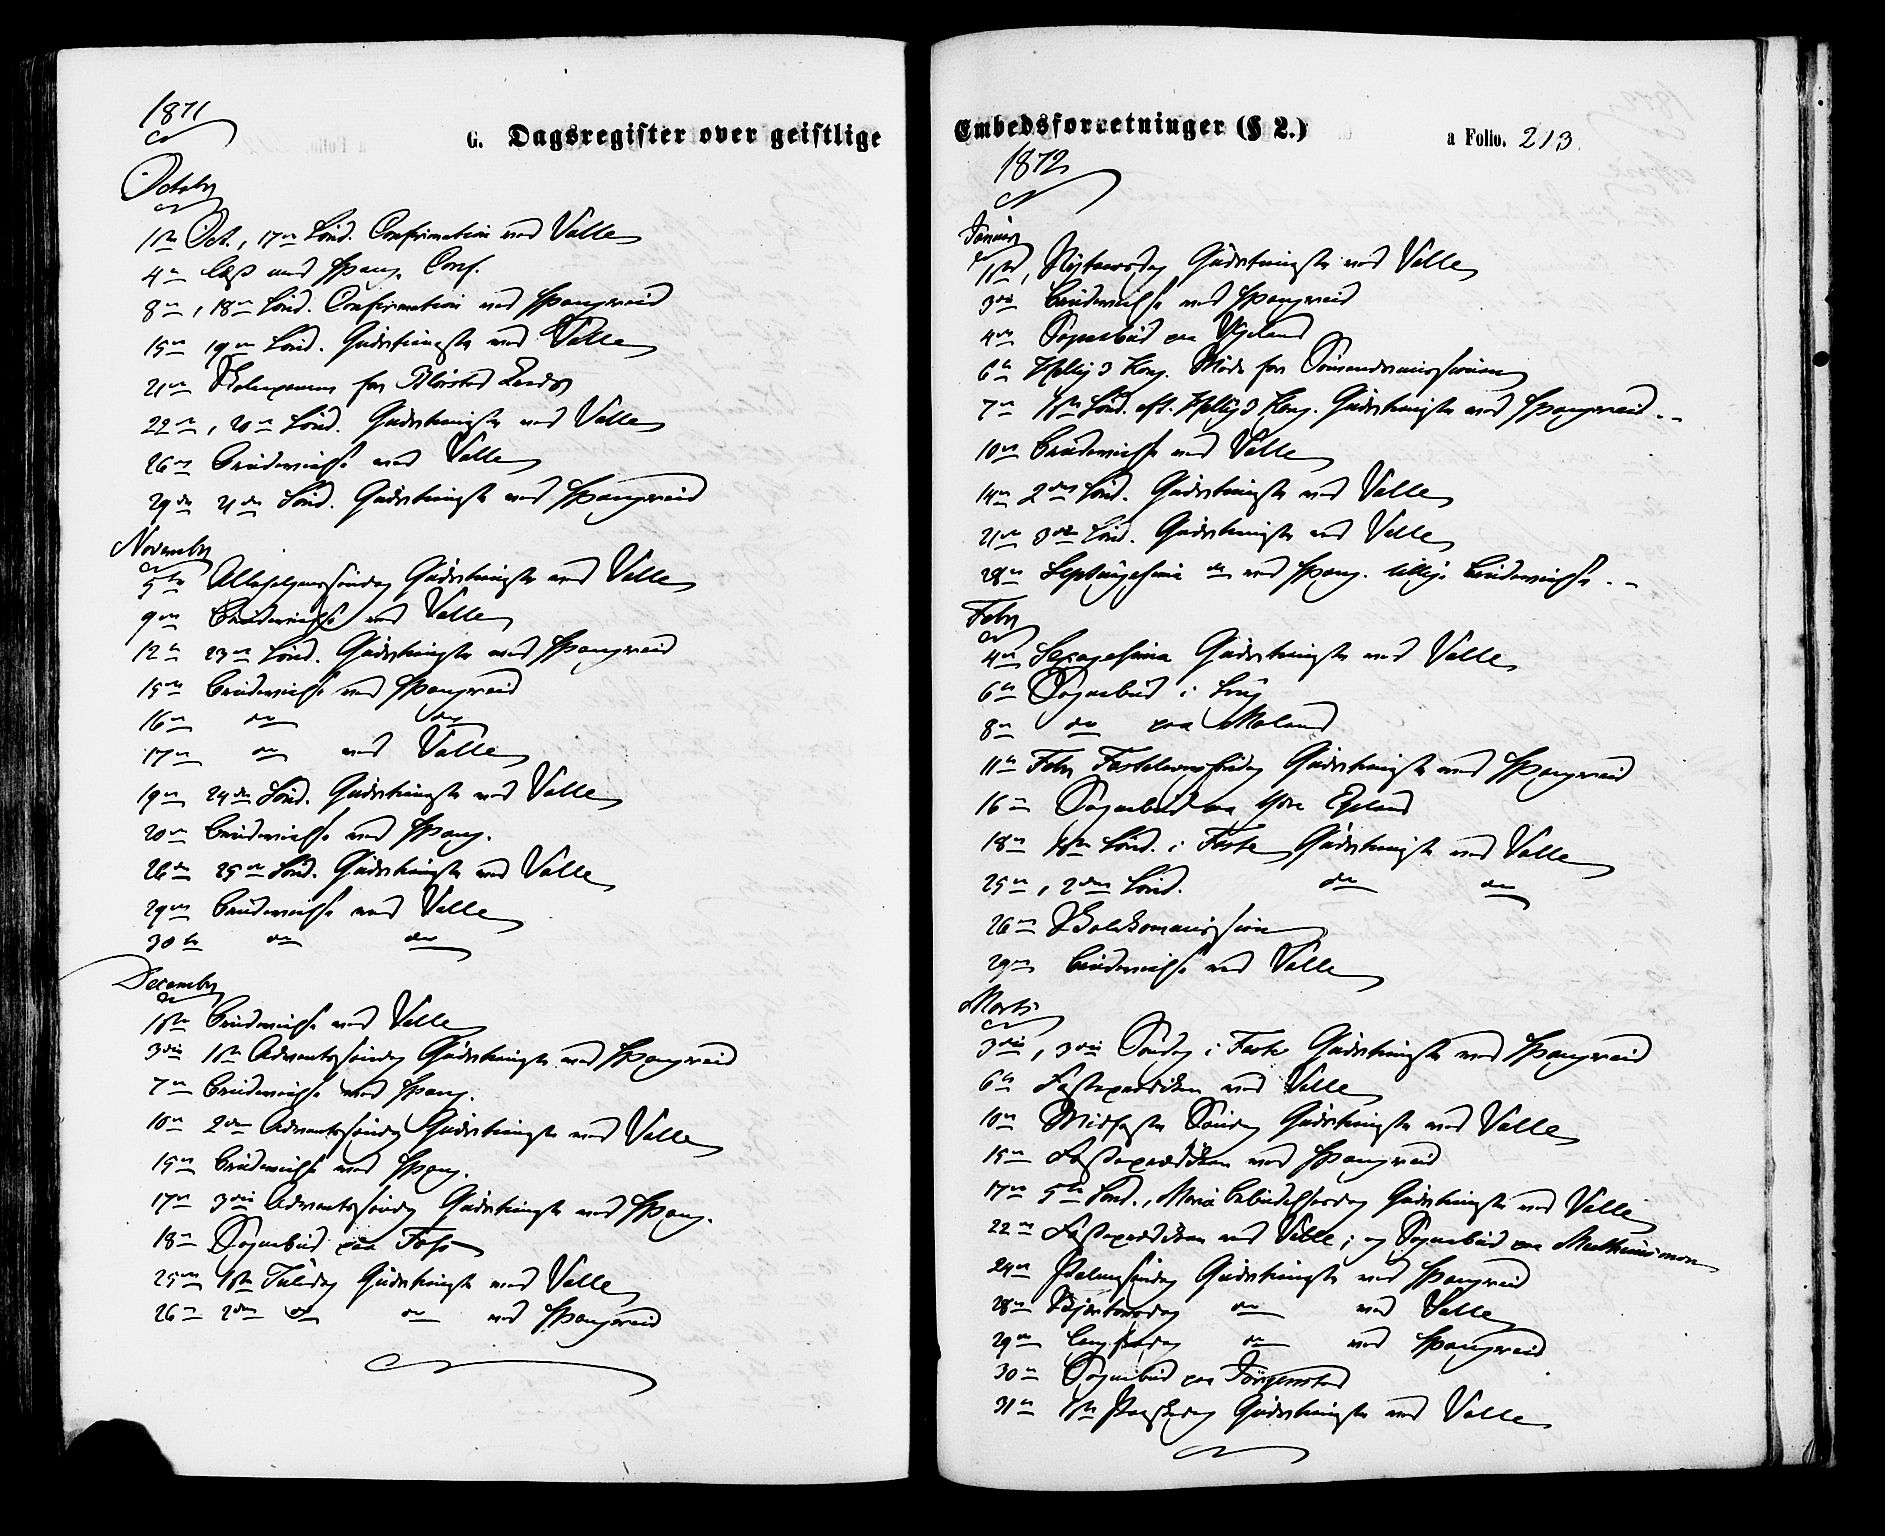 1871
G. Dagsregister over geistlige
October
1ste Oct., 17de Sönd. Confirmation ved Valle
4de Læst med Spang. Conf.
8de, 18de Sönd. Confirmation ved Spangereid
15de 19de Sönd. Gudstjeneste ved Valle
21de Skoleexamen for Kreds
22de, 20de Sönd. Gudstjeneste ved Valle
26de Brudevielse ved Valle
29de 21de Sönd. Gudstjeneste ved Spangereid
November
5te Allehelgenssöndag Gudstjeneste ved Valle
9de Brudevielse ved Valle
12te 23de Sönd. Gudstjeneste ved Spangereid
15de Brudevielse ved Spangereid
16de do do
17de do ved Valle
19de 24de Sönd. Gudstjeneste ved Valle
20de Brudevielse ved Spang.
26de 25de Sönd. Gudstjeneste ved Valle
29de Brudevielse ved Valle
30te do do
December
1ste Brudevielse ved Valle
3die 1ste Adventssöndag Gudstjeneste ved Spangereid
7de Brudevielse ved Spang.
10de 2den Adventssöndag Gudstjeneste ved Valle
15de Brudevielse ved Spang.
17de 3die Adventssöndag Gudstjeneste ved Spang.
18de Sognebud paa Foss
25de 1ste Juledag Gudstjeneste ved Valle
26de 2den do do ved Spangereid
Embedsforretninger (§ 2.)
a Folio. 213.
1872
Januar
1ste, Nytaarsdag Gudstjeneste ved Valle
3die Brudevielse ved Spangereid
4de Sognebud paa Vigeland
6te Hellig 3 Kong. Möde for Sömandsmissionen
7de 1ste Sönd. eft. Hellig 3 Kong. Gudstjeneste ved Spangereid.
10de Brudevielse ved Valle
14de 2den Sönd. Gudstjeneste ved Valle
21de 3die Sönd. Gudstjeneste ved Valle
28de Septuagesima do ved Spang. tillige Brudevielse.
Febr
4de Sexagesima Gudstjeneste ved Valle
6te Sognebud i
8de do paa
11te Febr Fastelavnssöndag Gudstjeneste ved Spangereid
16de Sognebud paa Egeland
18de 1ste Sönd. i Faste Gudstjeneste ved Valle
25de, 2den Sönd. do do
26de Skolekommission
29de Brudevielse ved Valle
Marts
3die, 3die Söndag i Faste Gudstjeneste ved Spangereid
6te Fasteprædiken ved Valle
10de Midfaste Söndag Gudstjeneste ved Valle
15de Fasteprædiken ved Spangereid
17de 5te Sönd., Mariæ Bebudelsesdag Gudstjeneste ved Valle
22de Fasteprædiken ved Valle; og Sognebud paa
24de Palmesöndag Gudstjeneste ved Spangereid
28de Skjærtorsdag do ved Valle
29de Langfredag do ved Spangereid
30te Sognebud paa Jörgenstad
31te 1ste Paaskedag Gudstjeneste ved Valle